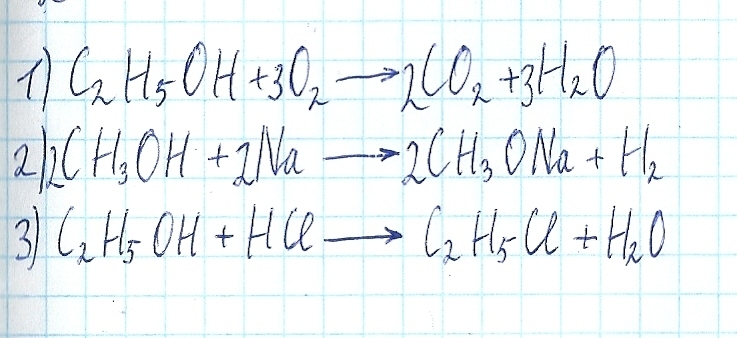 1) C₂H₅OH + 3O₂ → 2CO₂ + 3H₂O
2) 2CH₃OH + 2Na → 2CH₃ONa + H₂
3) C₂H₅OH + HCl → C₂H₅Cl + H₂O